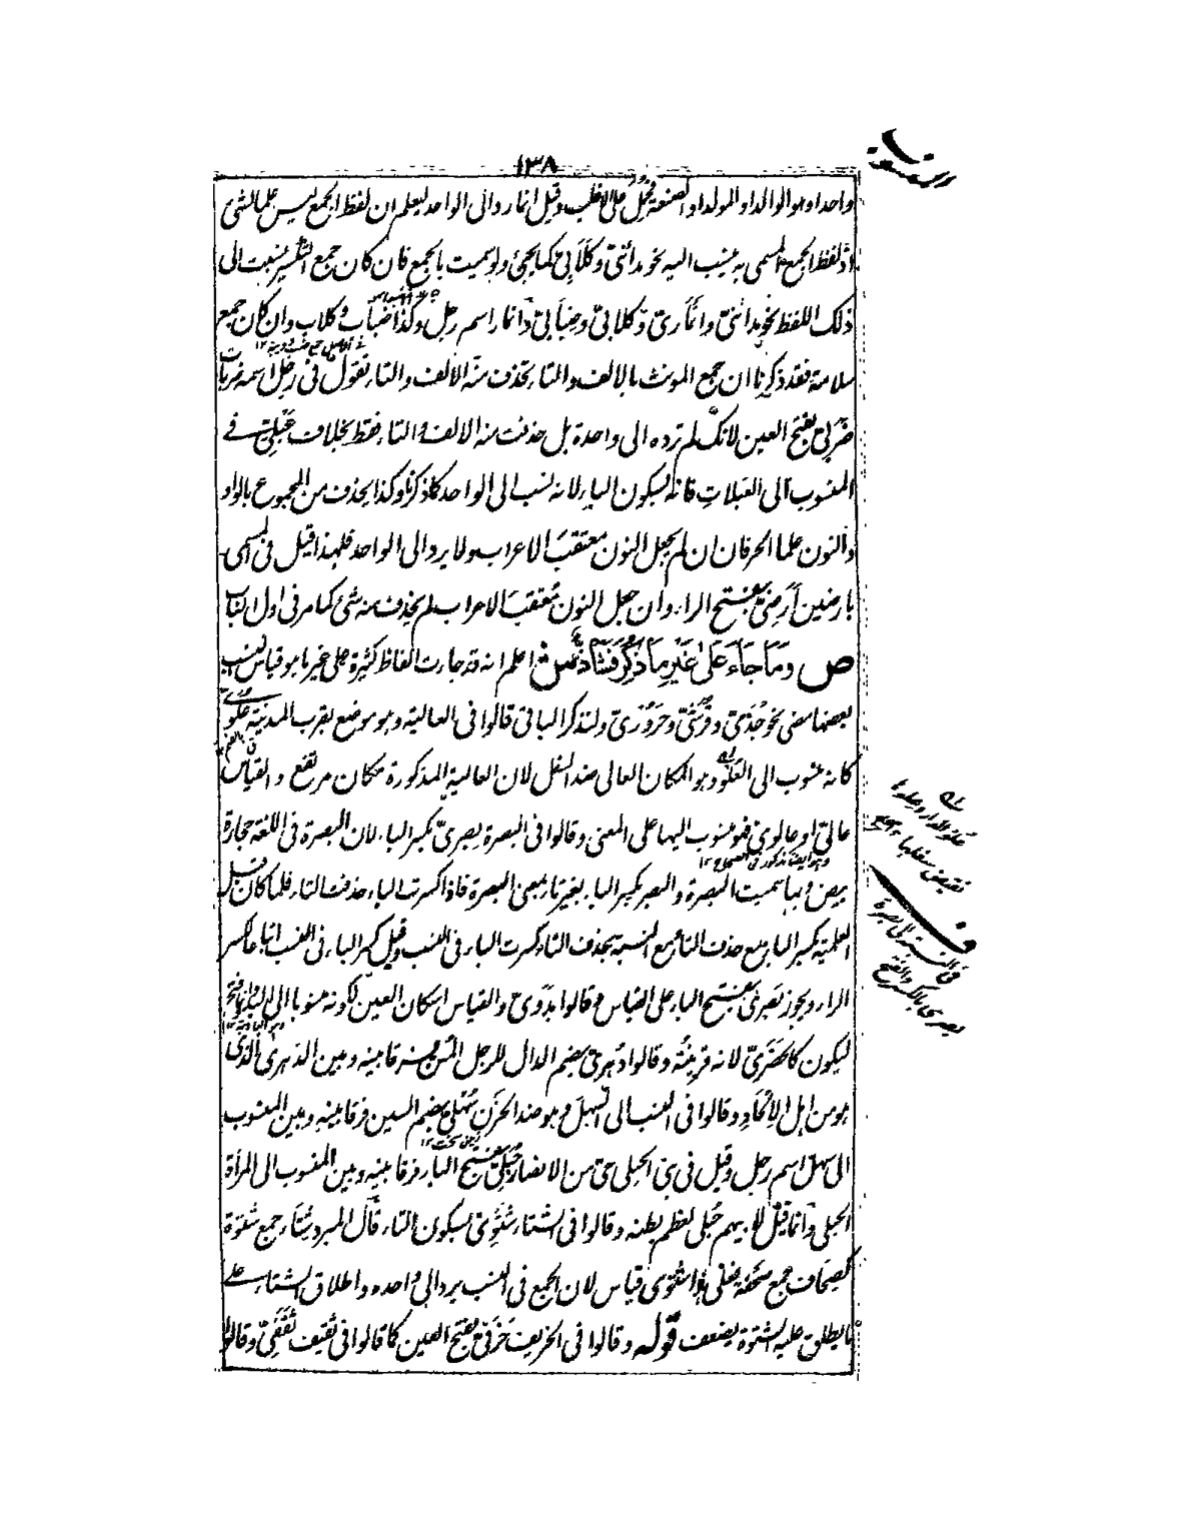 ١٣٨
المنسوب
واحدا وهو الوالد او المولد او الصنعة فحمل على الاغلب وقيل انما رد الى الواحد ليعلم ان لفظ الجمع ليس علما لشئ
اذ لفظ الجمع المسمى به ينسب اليه نحو مدائنىّ وكلابىّ كما يجئ ولو سميت بالجمع فان كان جمع التكسير نسبت الى
ذلك اللفظ نحو مدائنىّ وانمارىّ وكلابىّ وضبابىّ وانمار اسم رجل وكذا ضباب وكلاب وان كان جمع
سلامة فقد ذكرنا ان جمع المونث بالالف والتاء تحذف منه الالف والتاء تقول فى رجل اسمه ضربات
ضَرَبىّ بفتح العين لانك لم ترده الى واحدة بل حذفت منه الالف والتاء فقط بخلاف عَبْلىّ فے
المنسوب الى العبلات فانه بسكون الباء لانه نسب الى الواحد كما ذكرنا وكذا يحذف من المجموع بالواو
والنون علما الحرفان ان لم يجعل النون معتقب الاعراب ولا يرد الى الواحد فلهذا قيل فى المسمى
بارضين اَرَضىّ بفتح الراء وان جعل النون مُعتقبَ الاعراب لم يحذف منه شئ كما مر فى اول الكتاب
ص وَمَا جَاءَ عَلىٰ غَيْرِ مَا ذُكِرَ فَشَاذٌّ ش اعلم انه قد جاءت الفاظ كثيرة على غير ما هو قياس النسب
بعضها مضى نحو جُذَمىّ وقُرَشىّ وحَرُورىّ ولنذكر الباقى قالوا فى العالية وهو موضع بقرب المدينة عُلْوىّ
كانه منسوب الى العُلْو وهو المكان العالى ضد السفل لان العالية المذكورة مكان مرتفع والقياس
عالىّ او عالوىّ فهو منسوب اليها على المعنى وقالوا فى البصرة بِصرىّ بكسر الباء لان البصرة فى اللغة حجارة
بيض وبها سميت البصرة والبصر بكسر الباء بغير تاء بمعنى البصرة فاذا كسرت الباء حذفت التاء فلما كان قبل
العلمية بكسر الباء مع حذف التاء ومع النسبة بحذف التاء كسرت الباء فى النسب وقيل كسر الباء فى النسب اتباعا لكسر
الراء ويجوز بَصرىّ بفتح الباء على القياس وقالوا بَدَوىّ والقياس اسكان العين لكونه منسوبا الى البدو وانما فتح
ليكون كالحَضَرىّ لانه قرينُه وقالوا دُهرىّ بضم الدال للرجل المسن فرقا بينه وبين الدهرى الذى
هو من اهل الالحاد وقالوا فى النسب الى السهل وهو ضد الحزن سُهْلىّ بضم السين فرقا بينه وبين المنسوب
الى سهل اسم رجل وقيل فى بنى الحبلى حى من الانصار حُبَلىّ بفتح الباء فرقا بينه وبين المنسوب الى المرأة
الحبلى وانما قيل لابيهم حُبلى لعظم بطنه وقالوا فى الشتاء شَتْوىّ بسكون التاء قال المبرد شتاء جمع شتوة
كصحاف جمع صحفة فعلى هذا شتوى قياس لان الجمع فى النسب يرد الى واحده واطلاق الشتاء على
ما يطلق عليه الشتوة يضعف قوله وقالوا فى الخريف خَرَفىّ بفتح العين كما قالوا فى ثقيف ثَقَفىّ وقالوا
فى النسبة الى البصرة
بصرى بالكسر والفتح